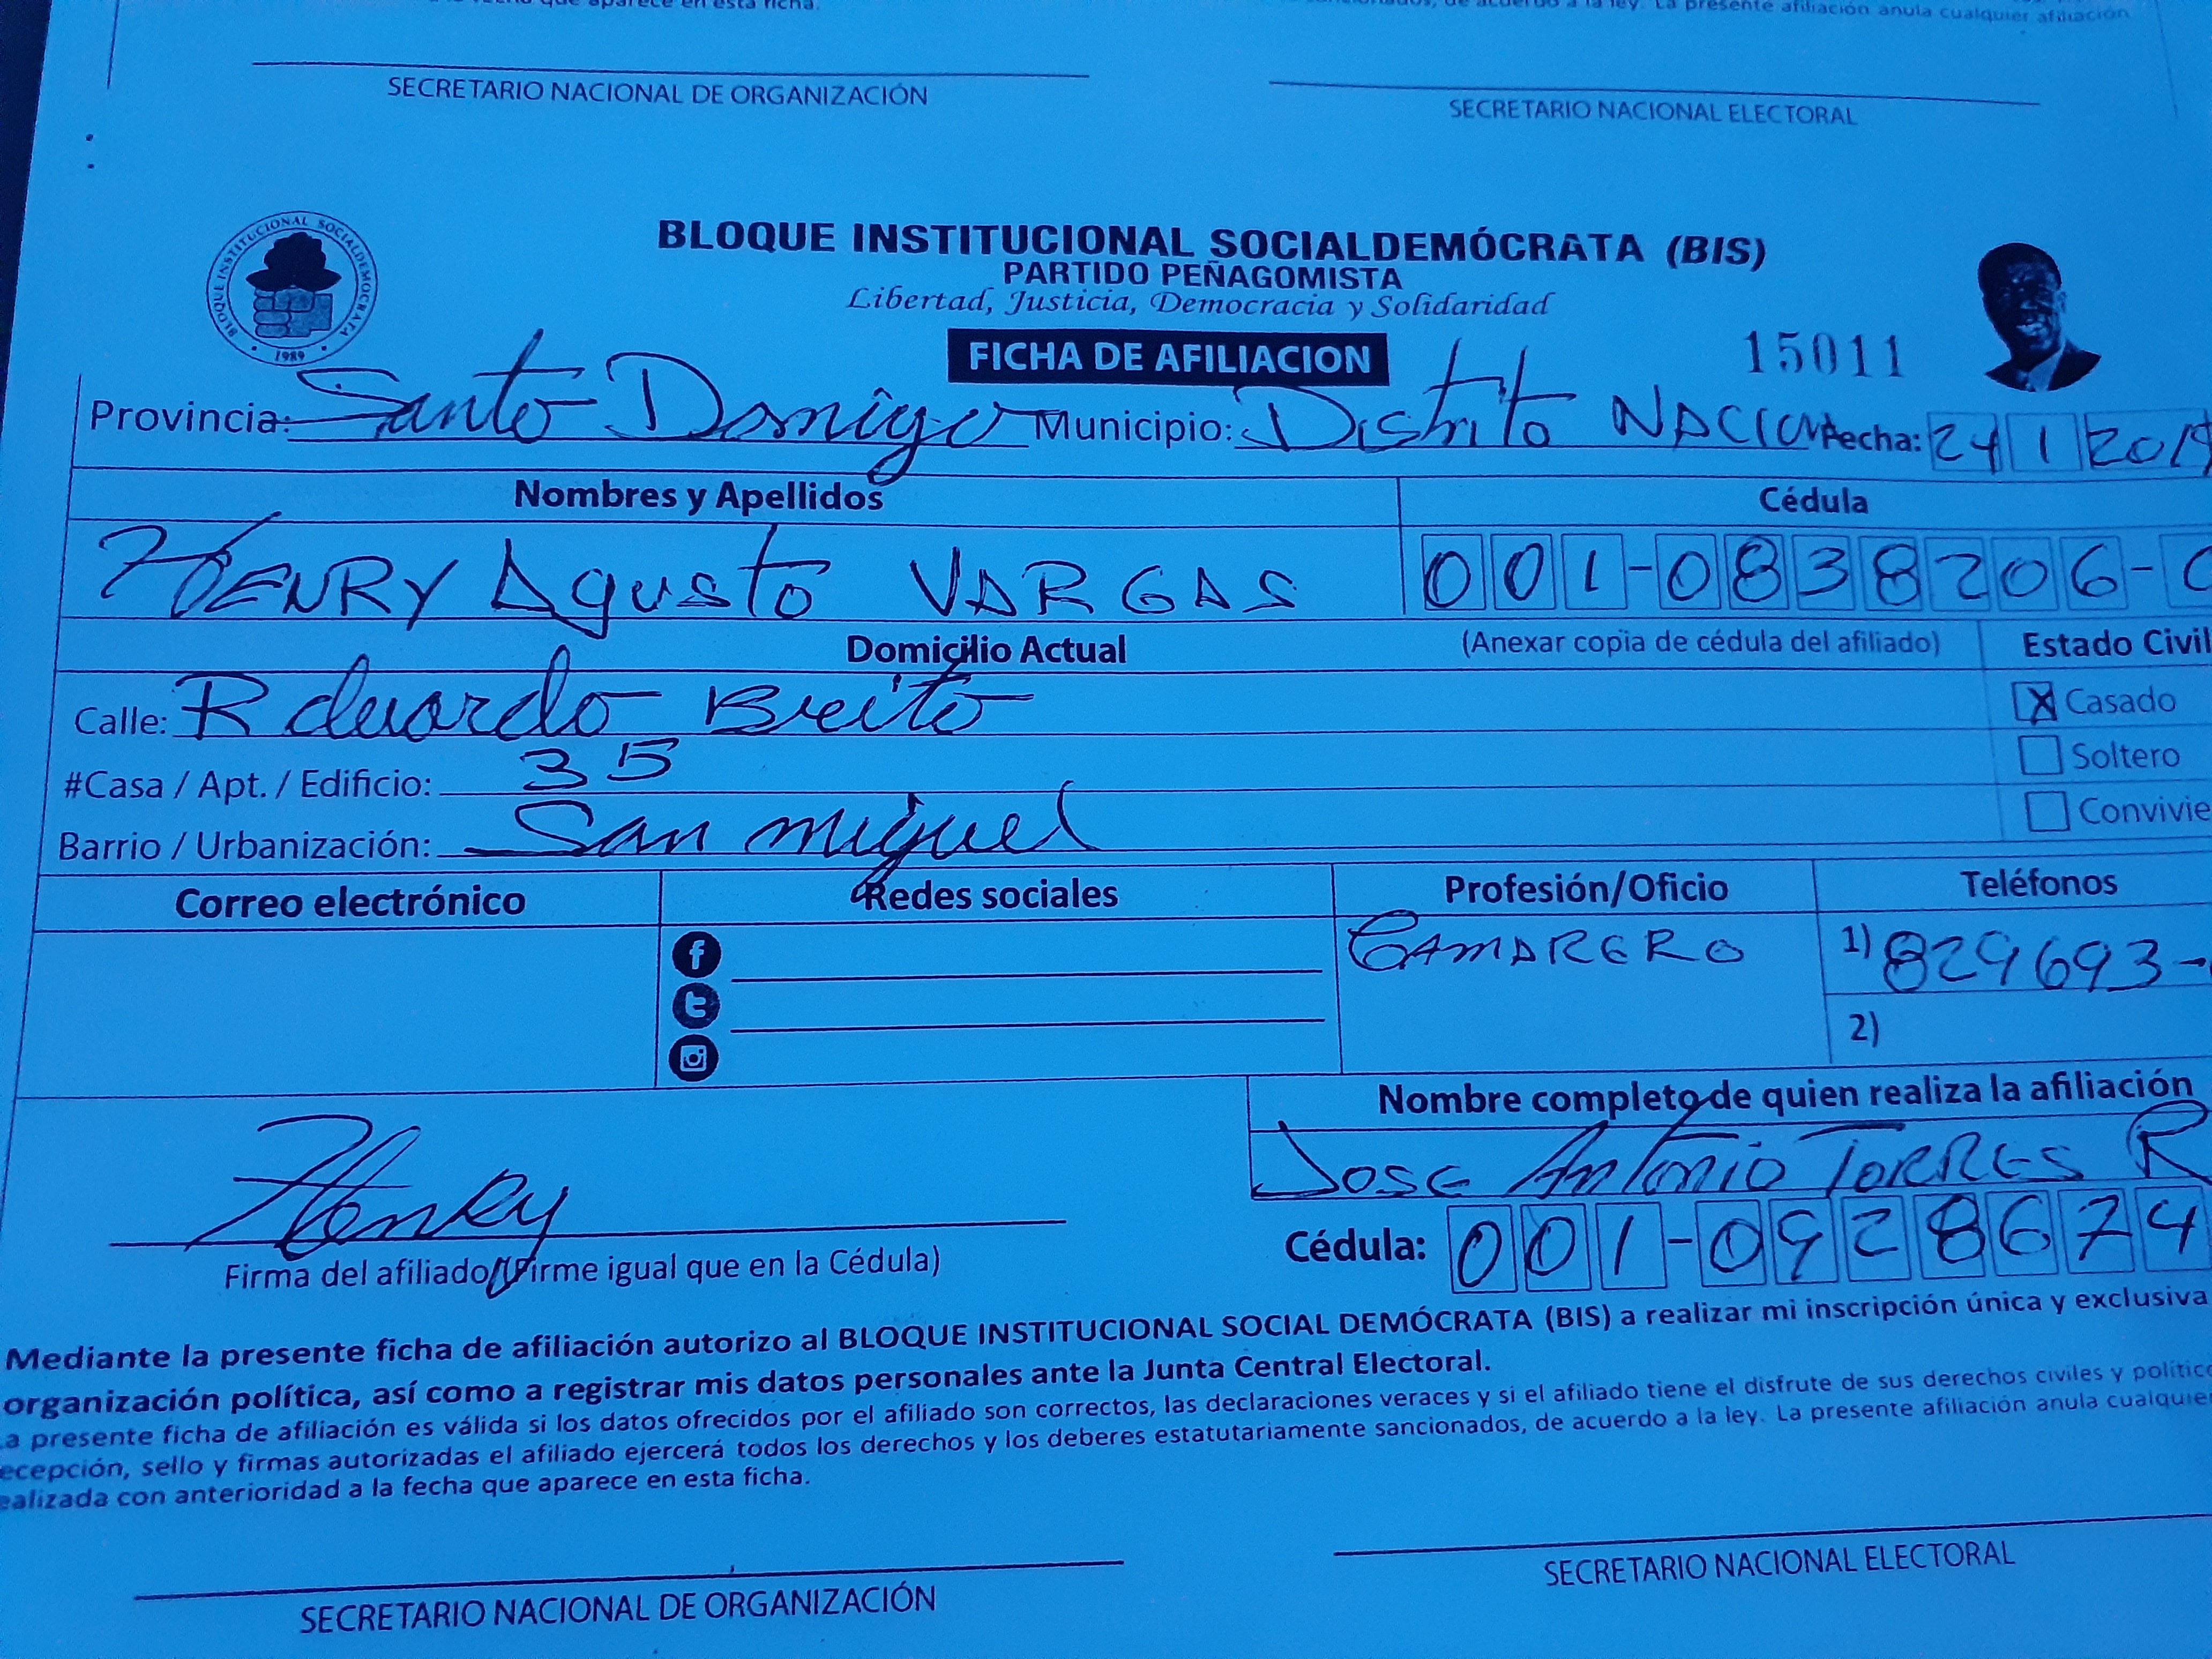 que aparece en esta ficha.
de acuerdo a la ley. La presente afiliación anula cualquier afiliación
SECRETARIO NACIONAL DE ORGANIZACIÓN
SECRETARIO NACIONAL ELECTORAL
BLOQUE INSTITUCIONAL SOCIALDEMOCRATA
1989
BLOQUE INSTITUCIONAL SOCIALDEMÓCRATA (BIS)
PARTIDO PEÑAGOMISTA
Libertad, Justicia, Democracia y Solidaridad
FICHA DE AFILIACION
15011
Provincia: Santo Domigo Municipio: Distrito NACION Fecha: 24 1 2019
Nombres y Apellidos Cédula
HENRY Agusto VARGAS 001-0838206-
Domicilio Actual (Anexar copia de cédula del afiliado) Estado Civil
Calle: Eduardo Breito X Casado
#Casa / Apt. / Edificio: 35 Soltero
Barrio / Urbanización: San Miguel Convivie
Correo electrónico Redes sociales Profesión/Oficio Teléfonos
CAMARERO 1) 829693-
2)
Nombre completo de quien realiza la afiliación
JOSE Antonio TORRES R
Henry Cédula: 001-0928674
Firma del afiliado/(Firme igual que en la Cédula)
Mediante la presente ficha de afiliación autorizo al BLOQUE INSTITUCIONAL SOCIAL DEMÓCRATA (BIS) a realizar mi inscripción única y exclusiva
organización política, así como a registrar mis datos personales ante la Junta Central Electoral.
a presente ficha de afiliación es válida si los datos ofrecidos por el afiliado son correctos, las declaraciones veraces y si el afiliado tiene el disfrute de sus derechos civiles y político
ecepción, sello y firmas autorizadas el afiliado ejercerá todos los derechos y los deberes estatutariamente sancionados, de acuerdo a la ley. La presente afiliación anula cualquier
ealizada con anterioridad a la fecha que aparece en esta ficha.
SECRETARIO NACIONAL DE ORGANIZACIÓN
SECRETARIO NACIONAL ELECTORAL